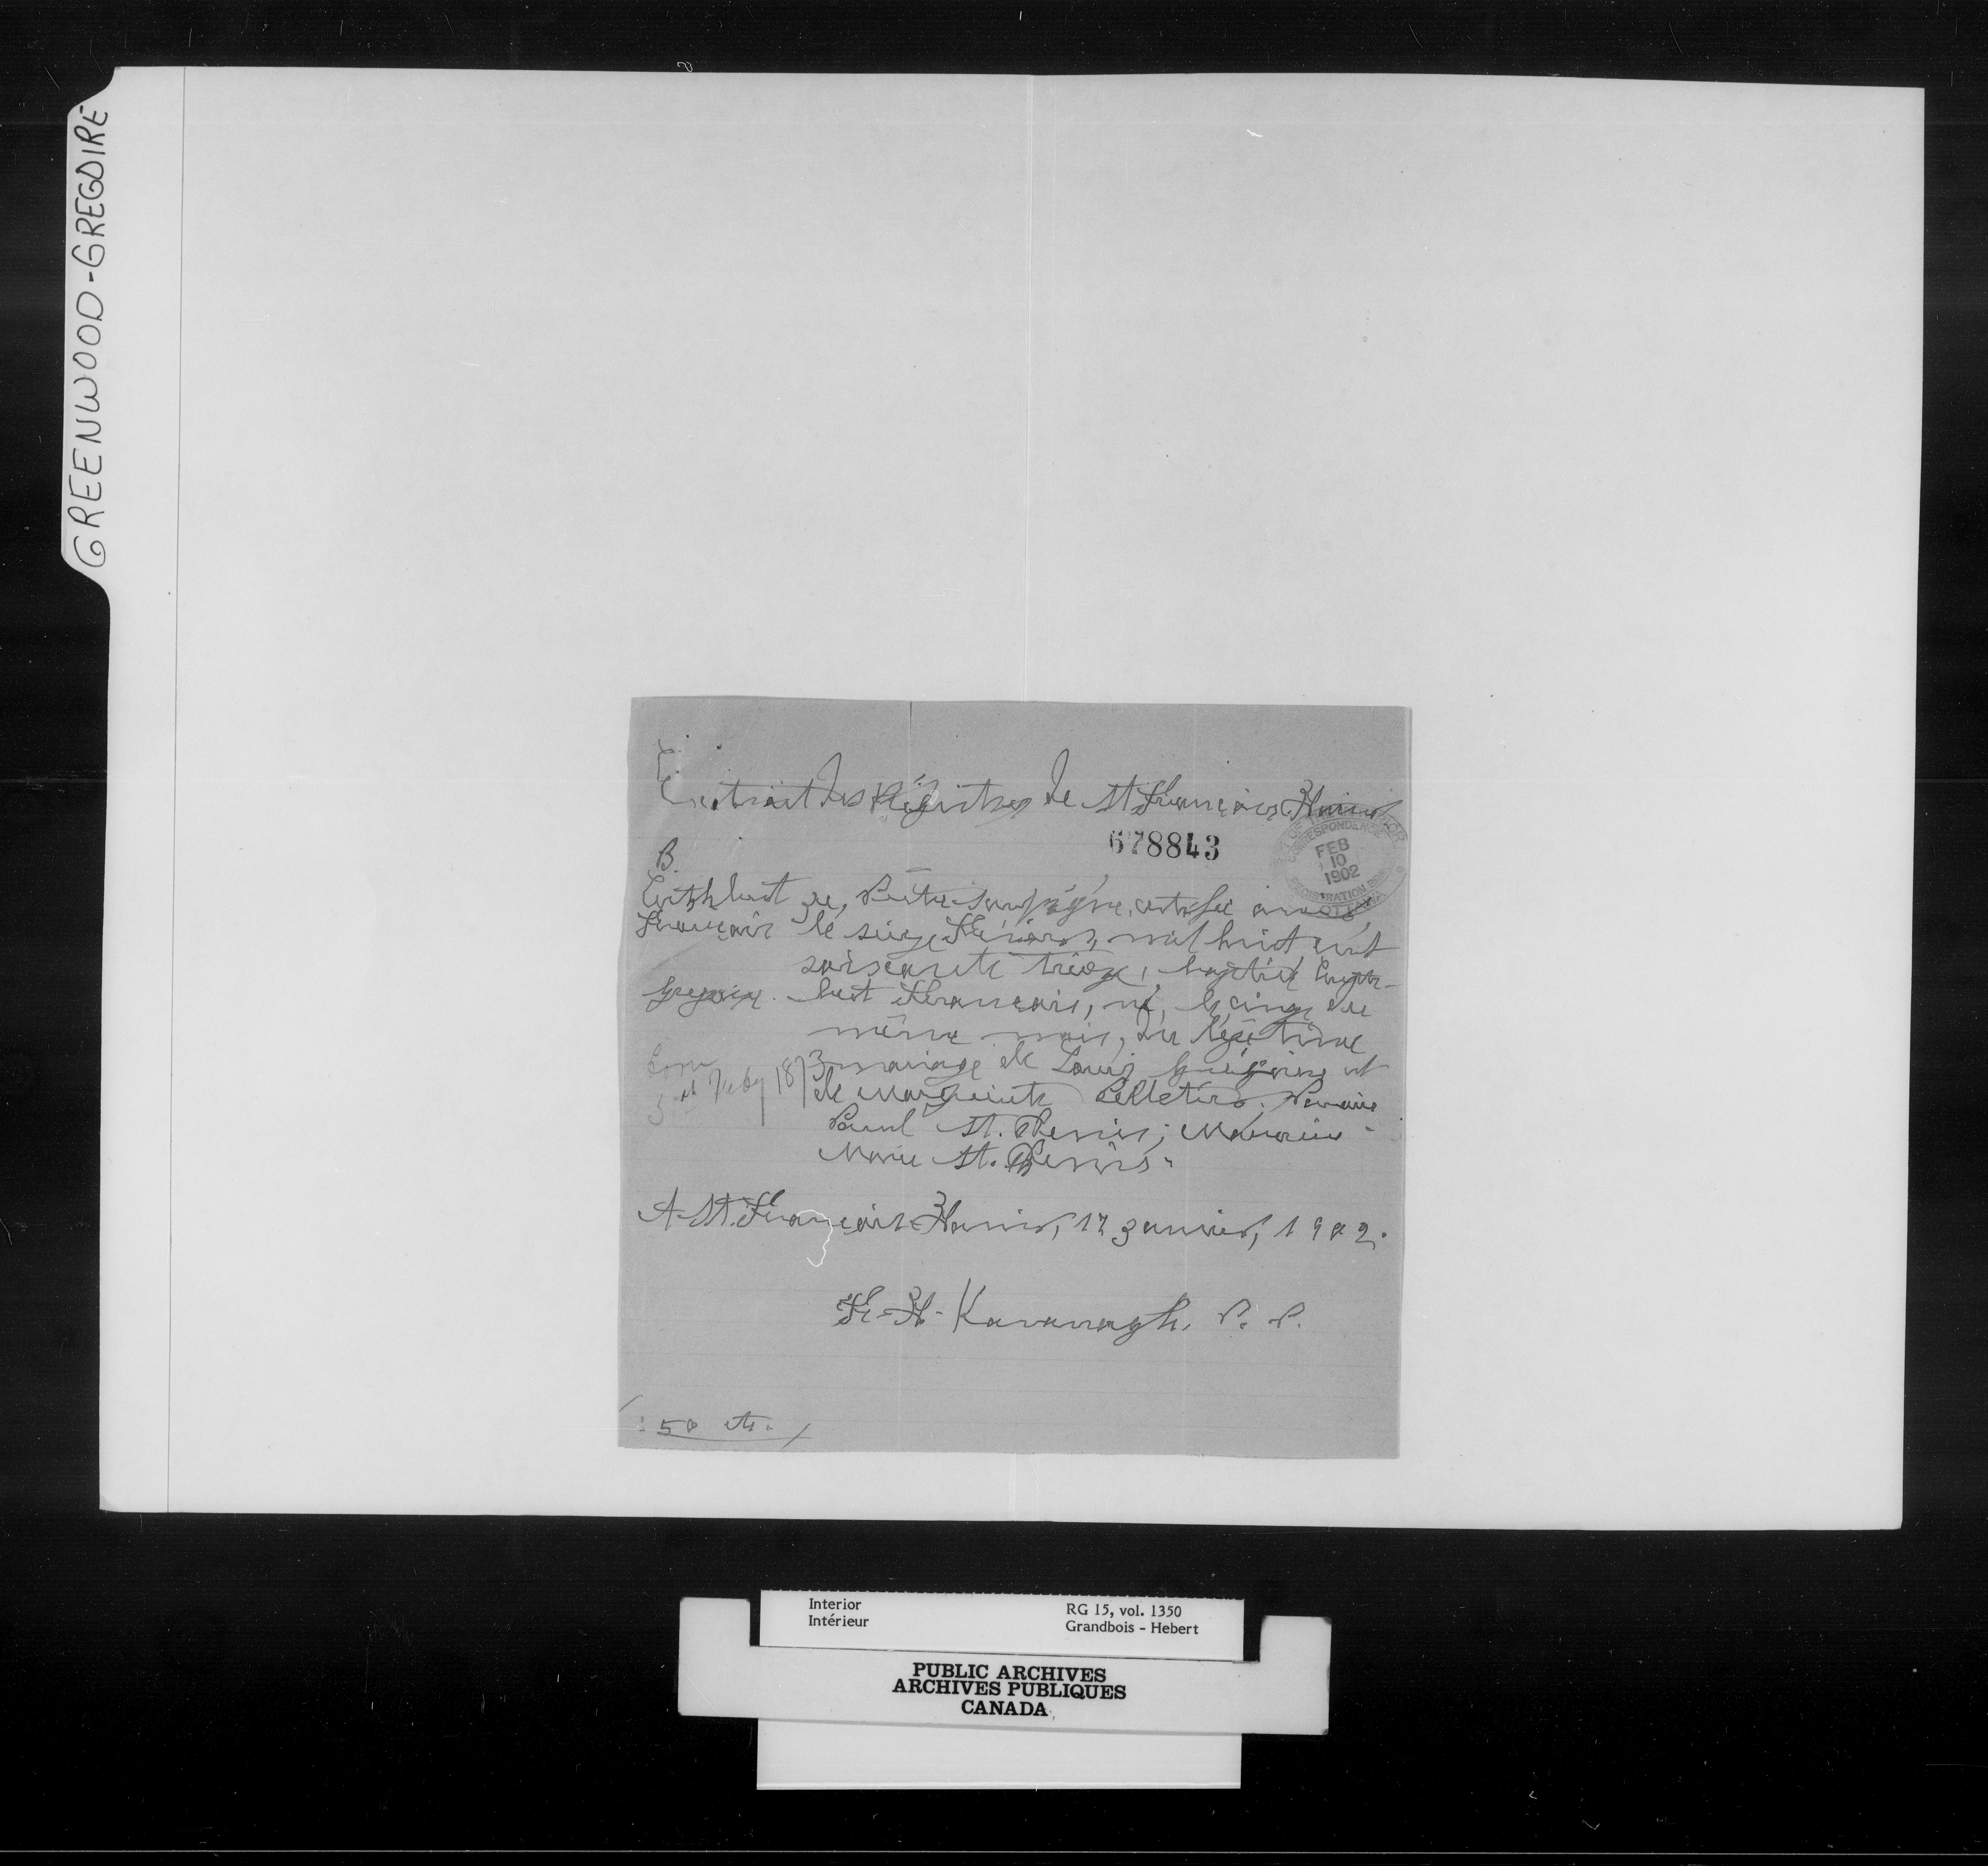 GREENWOOD-GREGOIRE
Extrait des Régistres de St François Xavier
678843
CORRESPONDENCE
FEB
10
1902
REGISTRATION
OTTAWA
B.
Cuthbert Je, Prêtre soussigné, certifie avoir
François le seize Février, mil huit cent
soixante treize, baptisé Cuth-
Gregoire. bert François, né, le cinq du
même mois, du légitime
Born
5th Feby 1873
mariage de Louis Grégoire et
de Marguerite Pelletier. Parrain
Paul St. Denis; Marraine
Marie St. Denis.
A St. François-Xavier, 17 Janvier, 1902.
F.-X- Kavanagh. P. P.
50 cts.
Interior
Intérieur
RG 15, vol. 1350
Grandbois - Hebert
PUBLIC ARCHIVES
ARCHIVES PUBLIQUES
CANADA